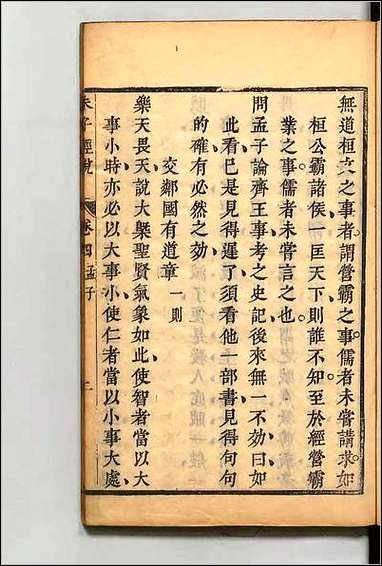 無道桓文之事者謂營霸之事儒者未嘗講求如
桓公霸諸侯一匡天下則誰不知至於經營霸
業之事儒者未嘗言之也
問孟子論齊王事考之史記後來無一不効曰如
此看巳是見得遲了須看他一部書見得句句
的確有必然之効
交鄰國有道章一則
樂天畏天說大槩聖賢氣象如此使智者當以大
事小時亦必以大事小使仁者當以小事大處
朱子經說
卷四
孟子